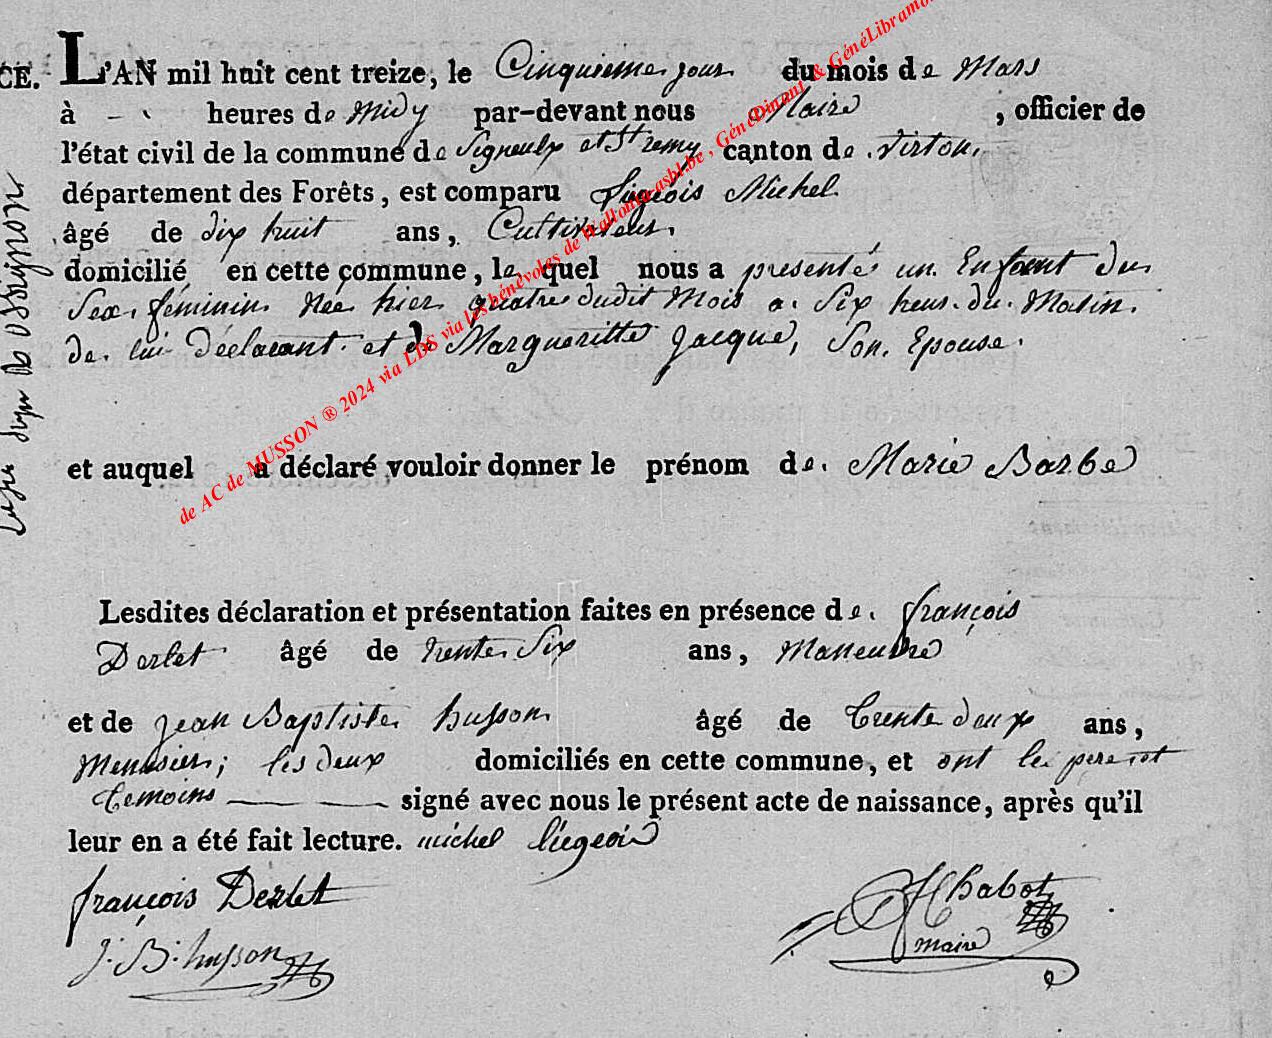 CE. L'AN mil huit cent treize, le Cinquieme jour du mois de Mars
à heures de midy par-devant nous Maire , officier de
l'état civil de la commune de Signeulx et St remy canton de Virton,
département des Forêts, est comparu Liegeois Michel
âgé de dix huit ans, Cultivateur,
domicilié en cette commune, le quel nous a presenté un Enfant du
Sex feminin née hier quatre dudit Mois a Six heur du Matin
de lui Déclarant et de Margueritte Jacque, Son Epouse.
et auquel a déclaré vouloir donner le prénom de Marie Barbe
Lesdites déclaration et présentation faites en présence de françois
Derlet âgé de trente Six ans, Maneuvre
et de jean Baptiste husson âgé de trente deux ans,
Menusier; les deux domiciliés en cette commune, et ont les pere et
temoins signé avec nous le présent acte de naissance, après qu'il
leur en a été fait lecture. michel liegeois
françois Derlet
J. B. husson
Chabot
maire
de AC de MUSSON ® 2024 via LDS via les bénévoles de wallonia-asbl.be , GénéDinant & GénéLibramo